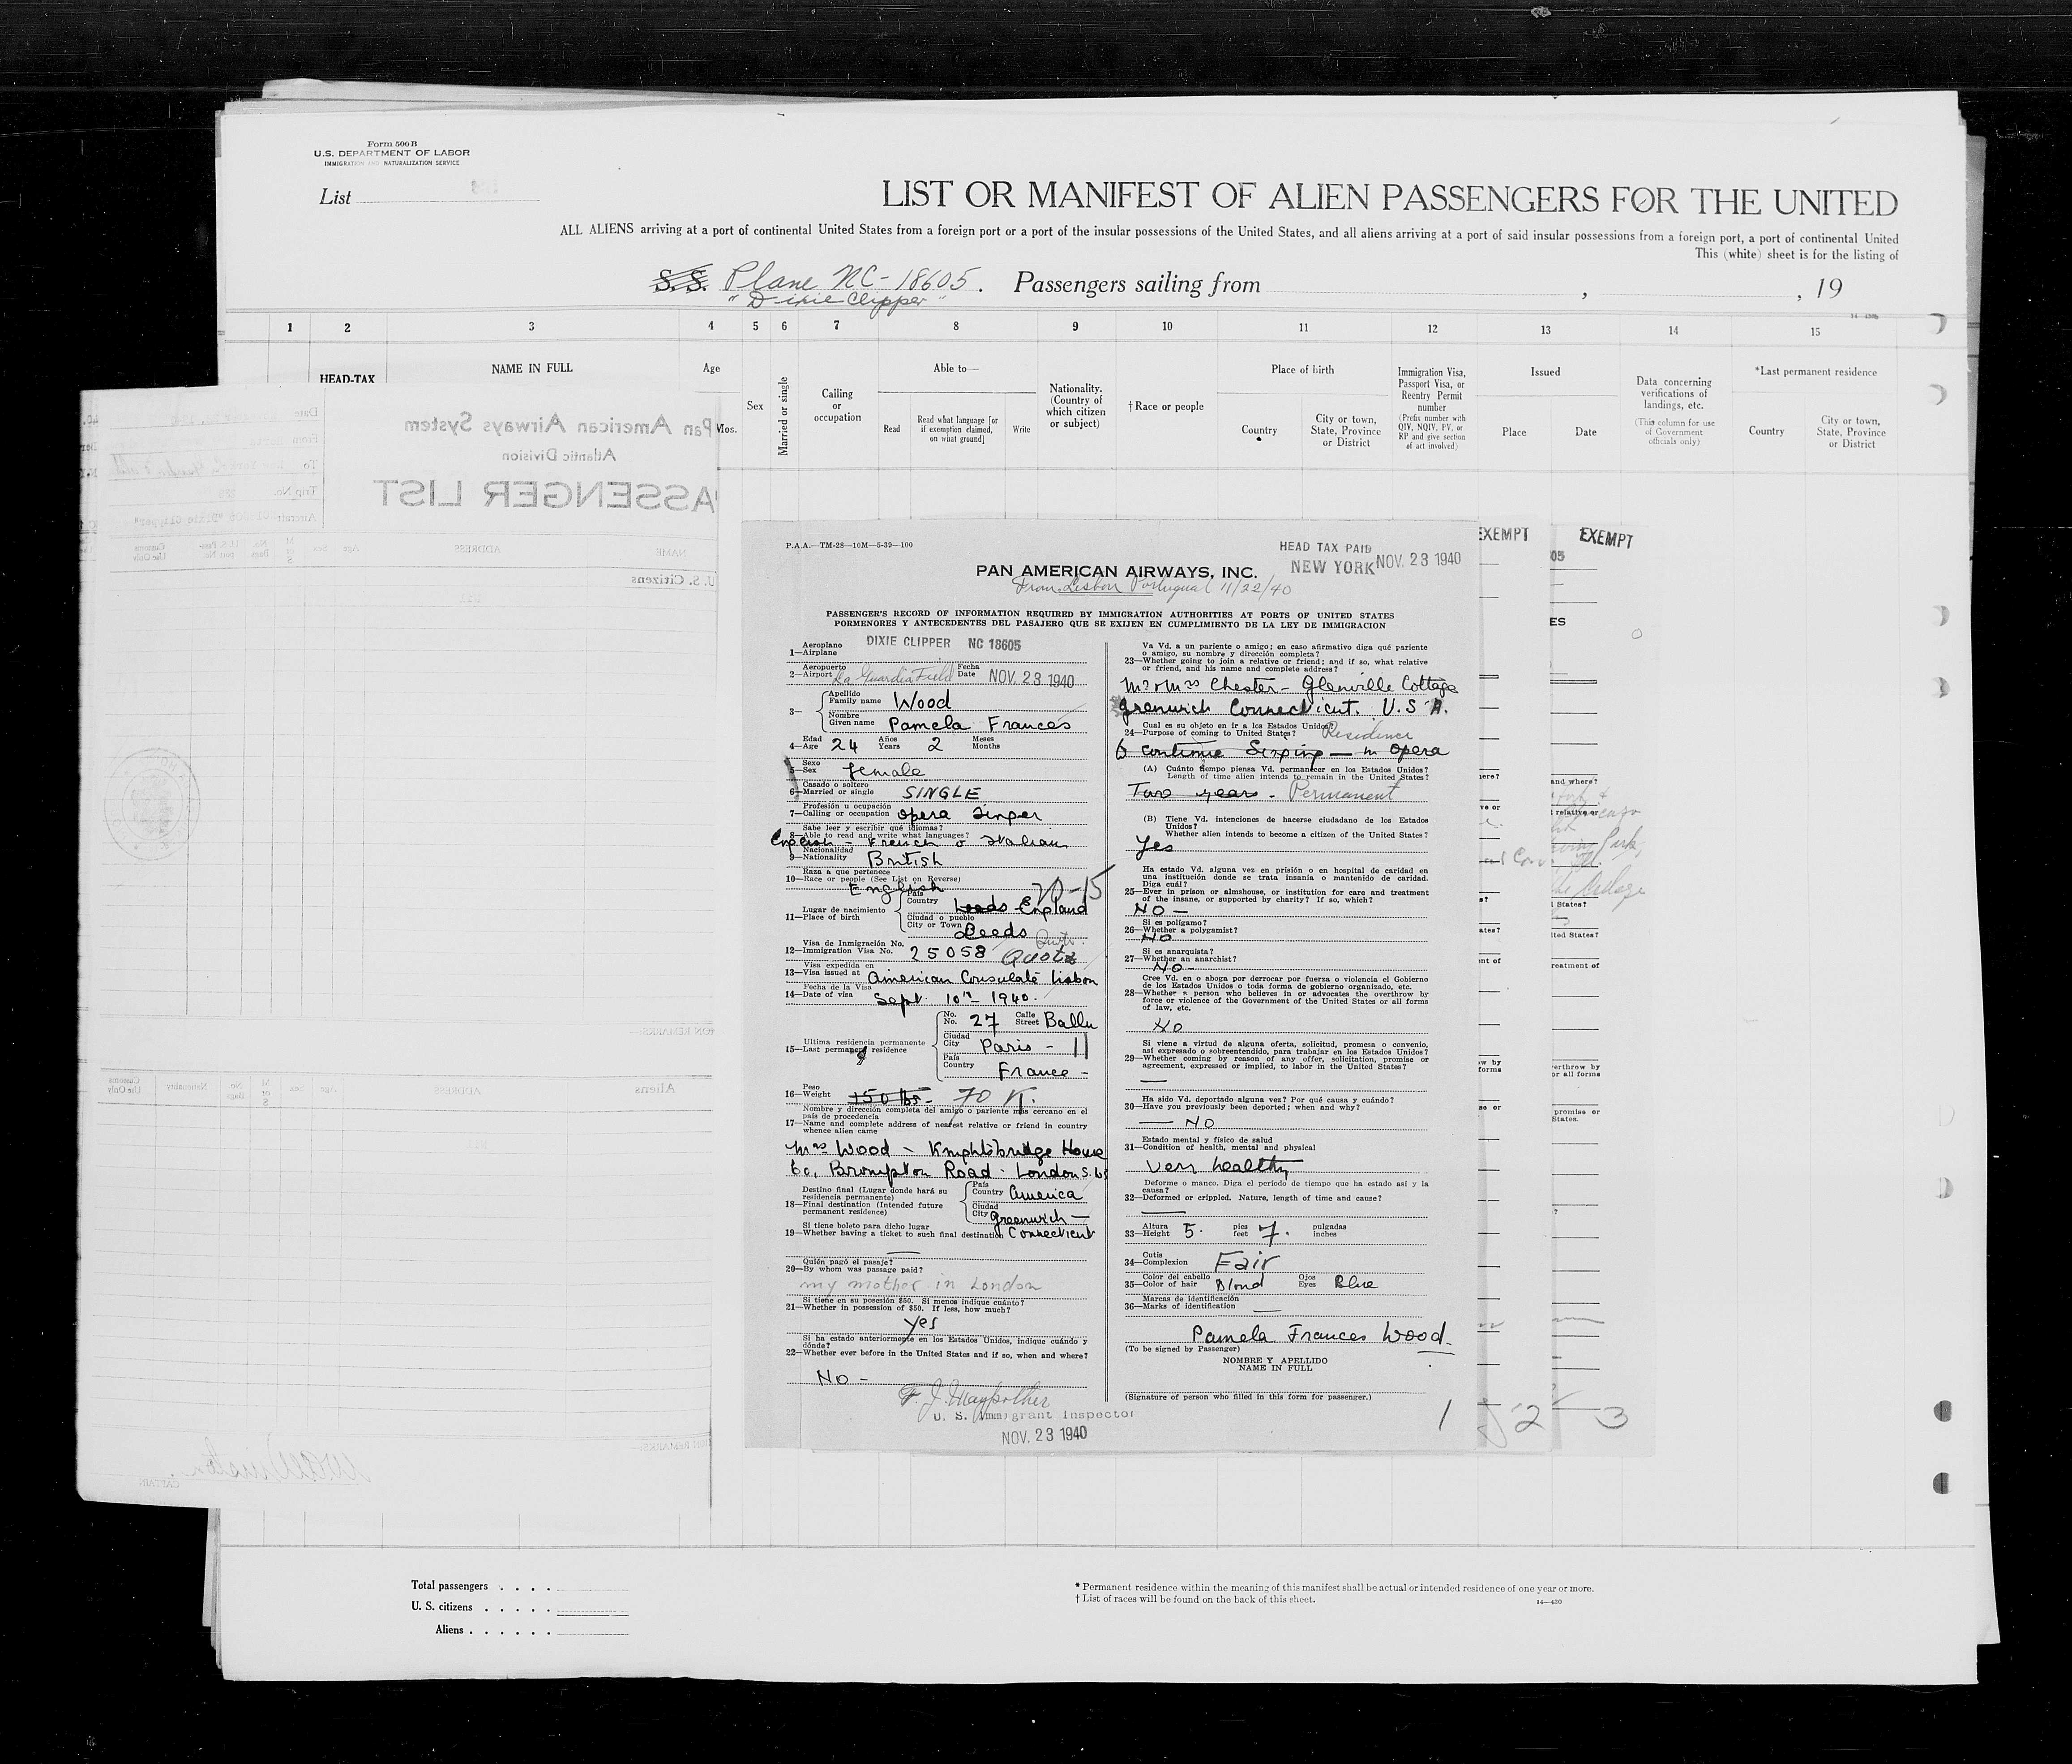 Form 500 B
U.S. DEPARTMENT OF LABOR
IMMIGRATION AND NATURALIZATION SERVICE
List
LIST OR MANIFEST OF ALIEN PASSENGERS FOR THE UNITED
ALL ALIENS arriving at a port of continental United States from a foreign port or a port of the insular possessions of the United States, and all aliens arriving at a port of said insular possessions from a foreign port, a port of continental United
This (white) sheet is for the listing of
S.S. Plane NC-18605. Passengers sailing from , , 19
"Dixie Clipper"
1 2 3 4 5 6 7 8 9 10 11 12 13 14 15
HEAD-TAX
NAME IN FULL
Age
Mos.
Sex
Married or single
Calling
or
occupation
Able to—
Read
Read what language [or
if exemption claimed,
on what ground]
Write
Nationality.
(Country of
which citizen
or subject)
† Race or people
Place of birth
Country
City or town,
State, Province
or District
Immigration Visa,
Passport Visa, or
Reentry Permit
number
(Prefix number with
QIV, NQIV, PV, or
RP and give section
of act involved)
Issued
Place
Date
Data concerning
verifications of
landings, etc.
(This column for use
of Government
officials only)
*Last permanent residence
Country
City or town,
State, Province
or District
Pan American Airways System
Atlantic Division
PASSENGER LIST
Date
From
To
Trip No.
Aircraft
NAME
ADDRESS
Age
Sex
U.S. Citizens
Aliens
ADDRESS
Age
Sex
Nationality
CAPTAIN
P.A.A.—TM-28—10M—5-39—100
HEAD TAX PAID
NEW YORK NOV. 23 1940
PAN AMERICAN AIRWAYS, INC.
From Lisbon Portugual 11/22/40
PASSENGER'S RECORD OF INFORMATION REQUIRED BY IMMIGRATION AUTHORITIES AT PORTS OF UNITED STATES
PORMENORES Y ANTECEDENTES DEL PASAJERO QUE SE EXIJEN EN CUMPLIMIENTO DE LA LEY DE IMMIGRACION
Aeroplano
1—Airplane DIXIE CLIPPER NC 18605
Aeropuerto Fecha
2—Airport La Guardia Field Date NOV. 23 1940
Apellido
3— Family name Wood
Nombre
Given name Pamela Frances
Edad Años Meses
4—Age 24 Years 2 Months
Sexo
5—Sex female
Casado o soltero
6—Married or single SINGLE
Profesión u ocupación
7—Calling or occupation opera singer
Sabe leer y escribir qué idiomas?
8—Able to read and write what languages?
English - French & Italian
Nacionalidad
9—Nationality British
Raza a que pertenece
10—Race or people (See List on Reverse)
English
Lugar de nacimiento
11—Place of birth
País
Country Leeds England
Ciudad o pueblo
City or Town Leeds
Visa de Inmigración No.
12—Immigration Visa No. 25058 Quota
Visa expedida en
13—Visa issued at American Consulate Lisbon
Fecha de la Visa
14—Date of visa Sept. 10th 1940.
Ultima residencia permanente
15—Last permanent residence
No. Calle
No. 27 Street Ballu
Ciudad
City Paris - 11
País
Country France -
Peso
16—Weight 150 lbs - 70 K.
Nombre y dirección completa del amigo o pariente más cercano en el
país de procedencia
17—Name and complete address of nearest relative or friend in country
whence alien came
Mrs Wood - Knightsbridge House
Brompton Road - London
Destino final (Lugar donde hará su
residencia permanente)
18—Final destination (Intended future
permanent residence)
País
Country America
Ciudad
City Greenwich -
Si tiene boleto para dicho lugar
19—Whether having a ticket to such final destination Connecticut
Quién pagó el pasaje?
20—By whom was passage paid?
my mother in London
Si tiene en su posesión $50. Si menos indique cuánto?
21—Whether in possession of $50. If less, how much?
yes
Si ha estado anteriormente en los Estados Unidos, indique cuándo y
dónde?
22—Whether ever before in the United States and if so, when and where?
No -
U. S. Immigrant Inspector
NOV. 23 1940
Va Vd. a un pariente o amigo; en caso afirmativo diga qué pariente
o amigo, su nombre y dirección completa?
23—Whether going to join a relative or friend; and if so, what relative
or friend, and his name and complete address?
Mr & Mrs Chester - Glenville Cottage
Greenwich Connecticut. U.S.A.
Cual es su objeto en ir a los Estados Unidos?
24—Purpose of coming to United States? Residence
to continue Singing - in opera
(A) Cuánto tiempo piensa Vd. permanecer en los Estados Unidos?
Length of time alien intends to remain in the United States?
Two years - Permanent
(B) Tiene Vd. intenciones de hacerse ciudadano de los Estados
Unidos?
Whether alien intends to become a citizen of the United States?
Yes
Ha estado Vd. alguna vez en prisión o en hospital de caridad en
una institución donde se trata insania o mantenido de caridad.
Diga cuál?
25—Ever in prison or almshouse, or institution for care and treatment
of the insane, or supported by charity? If so, which?
NO -
Si es polígamo?
26—Whether a polygamist?
No
Si es anarquista?
27—Whether an anarchist?
No -
Cree Vd. en o aboga por derrocar por fuerza o violencia el Gobierno
de los Estados Unidos o toda forma de gobierno organizado, etc.
28—Whether a person who believes in or advocates the overthrow by
force or violence of the Government of the United States or all forms
of law, etc.
No
Si viene a virtud de alguna oferta, solicitud, promesa o convenio,
así expresado o sobreentendido, para trabajar en los Estados Unidos?
29—Whether coming by reason of any offer, solicitation, promise or
agreement, expressed or implied, to labor in the United States?
—
Ha sido Vd. deportado alguna vez? Por qué causa y cuándo?
30—Have you previously been deported; when and why?
— NO
Estado mental y físico de salud
31—Condition of health, mental and physical
very healthy
Deforme o manco. Diga el período de tiempo que ha estado así y la
causa?
32—Deformed or crippled. Nature, length of time and cause?
—
Altura pies pulgadas
33—Height 5. feet 7. inches
Cutis
34—Complexion Fair
Color del cabello Ojos
35—Color of hair Blond Eyes Blue
Marcas de identificación
36—Marks of identification —
Pamela Frances Wood.
(To be signed by Passenger)
NOMBRE Y APELLIDO
NAME IN FULL
(Signature of person who filled in this form for passenger.)
1 2 3
EXEMPT
EXEMPT
Total passengers . . . .
U. S. citizens . . . . .
Aliens . . . . . .
* Permanent residence within the meaning of this manifest shall be actual or intended residence of one year or more.
† List of races will be found on the back of this sheet.
14—430